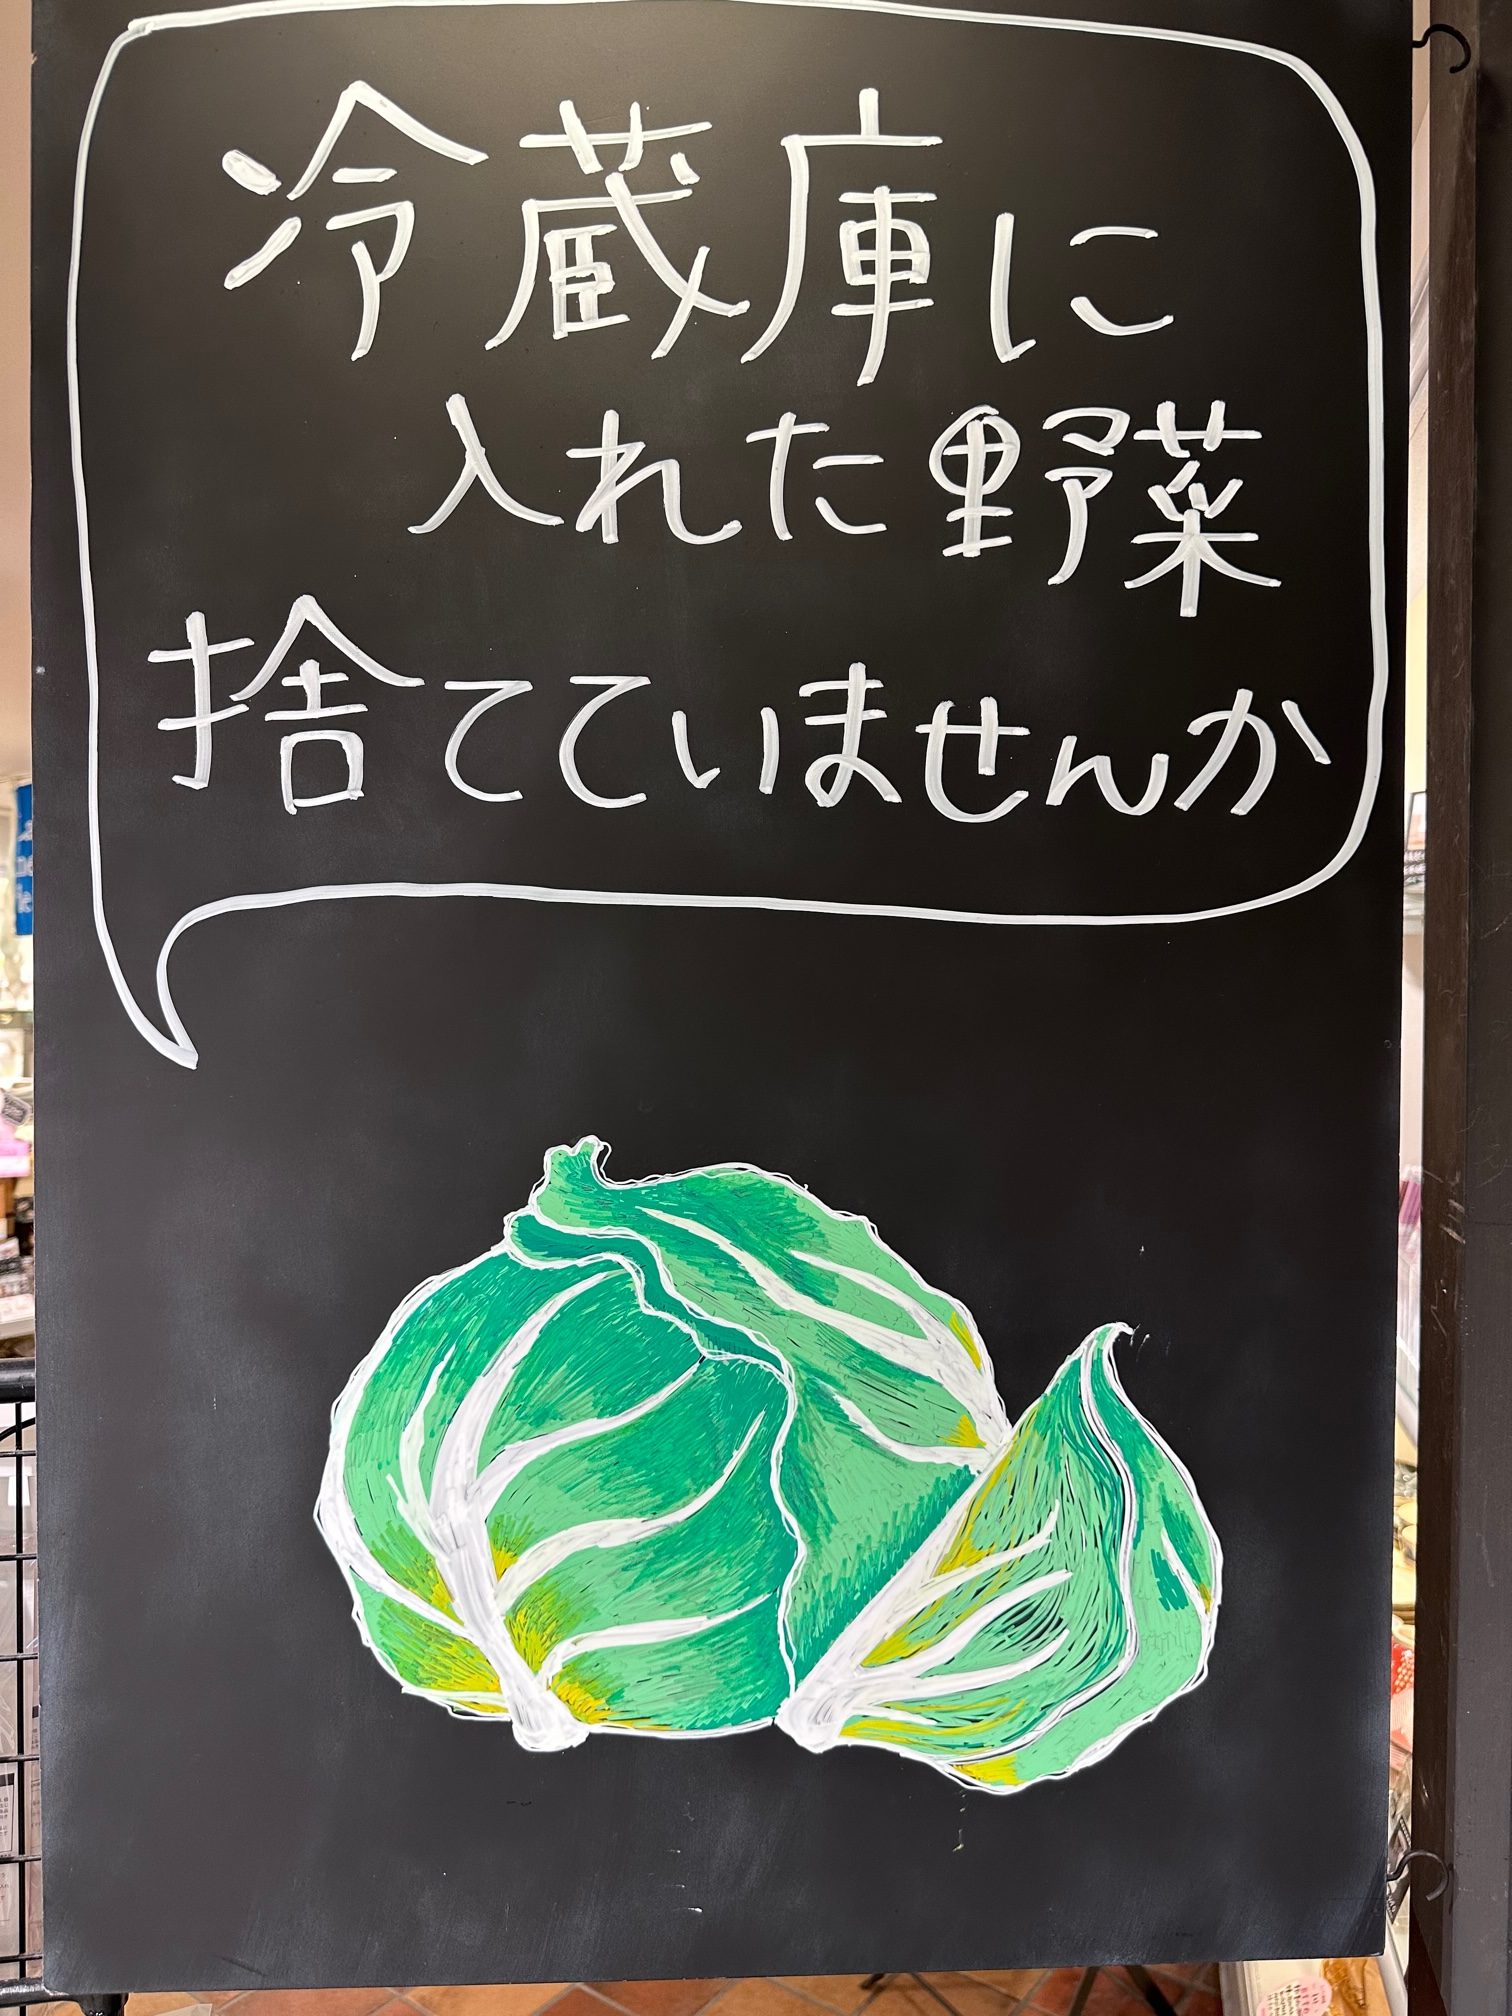 冷蔵庫に
入れた野菜
捨てていませんか